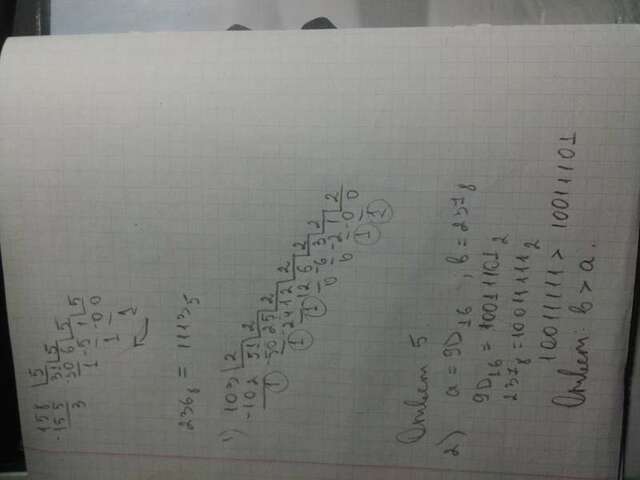 158 | 5
-155 31 | 5
3 -30 6 | 5
1 -5 1 | 5
1 -0 0
1
236₈ = 1113₅
1) 103 | 2
-102 51 | 2
1 -50 25 | 2
1 -24 12 | 2
1 -12 6 | 2
0 -6 3 | 2
0 -2 1 | 2
1 -0 0
1
Ответ 5.
2) a = 9D₁₆, b = 237₈
9D₁₆ = 10011101₂
237₈ = 10011111₂
10011111 > 10011101
Ответ: b > a.